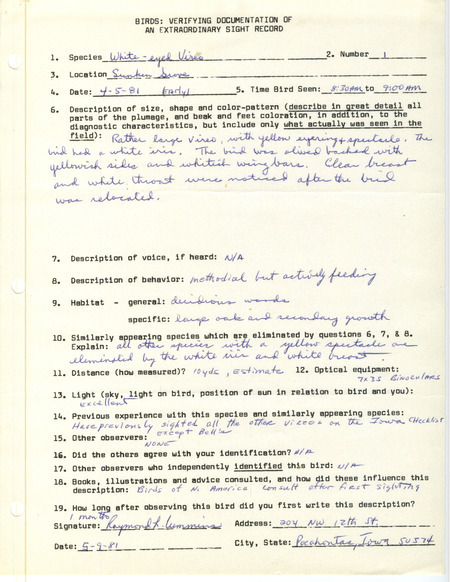 BIRDS: VERIFYING DOCUMENTATION OF
AN EXTRAORDINARY SIGHT RECORD
1. Species White-eyed Vireo 2. Number 1
3. Location Sunken Grove
4. Date: 4-5-81 Early 5. Time Bird Seen: 8:30am to 9:00am
6. Description of size, shape and color-pattern (describe in great detail all
parts of the plumage, and beak and feet coloration, in addition, to the
diagnostic characteristics, but include only what actually was seen in the
field): Rather large vireo, with yellow eyering & spectacle. The
bird had a white iris. The bird was olived backed with
yellowish sides and whitish wing bars. Clear breast
and white throat were noticed after the bird
was relocated.
7. Description of voice, if heard: N/A
8. Description of behavior: methodial but actively feeding
9. Habitat - general: decidious woods
specific: large oak and secondary growth
10. Similarly appearing species which are eliminated by questions 6, 7, & 8.
Explain: all other species with a yellow spectacle are
eleminated by the white iris and white breast.
11. Distance (how measured)? 10yds, estimate 12. Optical equipment:
7x35 Binoculars
13. Light (sky, light on bird, position of sun in relation to bird and you):
excellent
14. Previous experience with this species and similarly appearing species:
Have previously sighted all the other vireos on the Iowa Checklist
except Bell's
15. Other observers: NONE
16. Did the others agree with your identification? N/A
17. Other observers who independently identified this bird: N/A
18. Books, illustrations and advice consulted, and how did these influence this
description: Birds of N. America consult after first sighting
19. How long after observing this bird did you first write this description?
1 month
Signature: Raymond L. Cummins Address: 204 NW 12th St.
Date: 5-9-81 City, State: Pocahontas, Iowa 50574